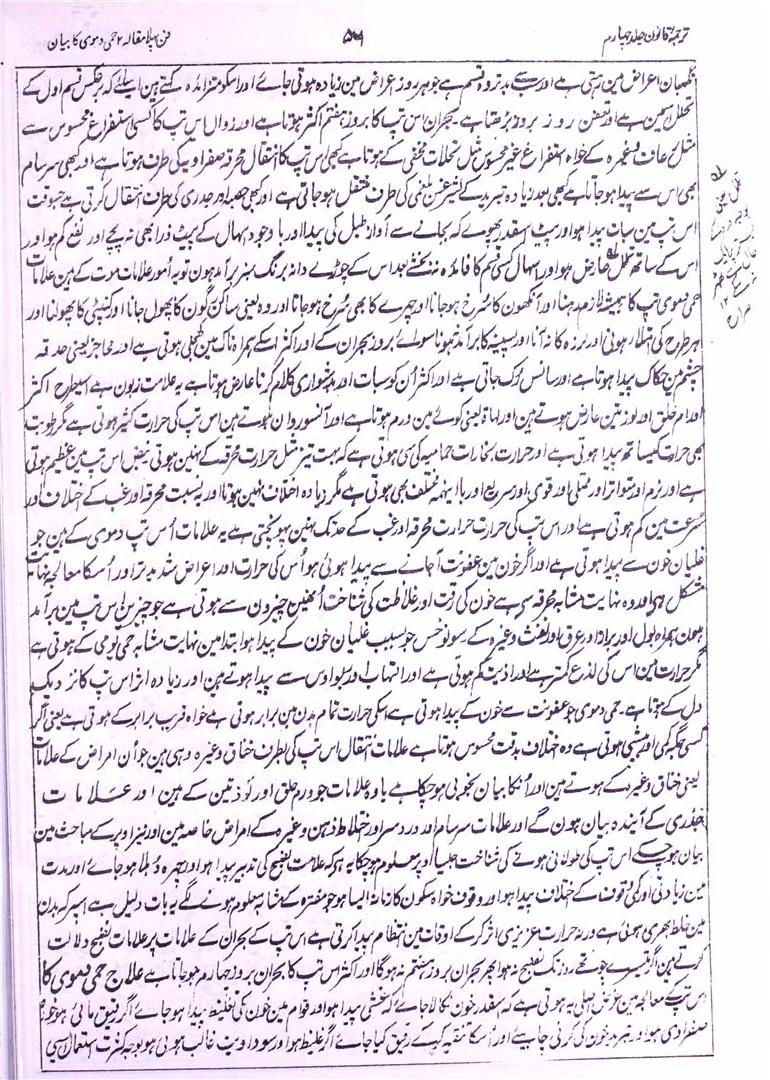 ترجمہ قانون جلد چہارم
۵۹
فن پہلا مقالہ ۲ حمی دموی کا بیان
اعراض مین رہتی ہے اور سب سے بدتر وہ قسم ہے جو ہر روز اعراض مین زیادہ ہوتی جائے اور اسکو متزائدہ کہتے ہین اسلئے کہ برعکس قسم اول کے
تحلل اسمین ہے اور تعفن روز بروز بڑھتا ہے بحران اس تپ کا بروز ہفتم اکثر ہوتا ہے اور زوال اس تپ کا کسی استفراغ محسوس سے
مثل رعاف وغیرہ کے خواہ استفراغ غیر محسوس مثل تحلات مخفی کے ہوتا ہے کبھی اس تپ کا انتقال محرقہ صفراویہ کی طرف ہوتا ہے اور کبھی سرسام
بھی اس سے پیدا ہو جاتا ہے کبھی بعد زیادہ تبرید کے لیثرغس بلغمی کی طرف منتقل ہو جاتی ہے اور کبھی حصبہ اور جدری کی طرف انتقال کرتی ہے جسوقت
اس تپ مین سبات پیدا ہو اور پیٹ اسقدر پھولے کہ بجانے سے آواز طبل کی پیدا اور با وجود اسہال کے پیٹ ذرا بھی نہ پچے اور نفع کم ہو اور
اس کے ساتھ عارض ہو اور اسہال کسی قسم کا فائدہ نہ بخشے بعد اس کے چوڑے دانہ برنگ سبز برآمد ہون تو یہ امور علامات موت کے ہین علامات
حمی دموی تپ کا ہمیشہ لازم رہنا اور آنکھون کا سرخ ہو جانا اور چہرے کا بھی سرخ ہو جانا اور وہ یعنی ساکن رگون کا پھول جانا اور کنپٹی کا پھولنا اور
ہر طرح کی امتلا ہونی اور لرزہ کا نہ آنا اور پسینہ کا برآمد نہونا سوائے بروز بحران کے اور اکثر اسکے ہمراہ ناک مین کھجلی ہوتی ہے اور محاجر یعنی حدقہ
چشم مین حکاک پیدا ہوتا ہے اور سانس رک جاتی ہے اور اکثر ان کو سبات اور بدشواری کلام کرنا عارض ہوتا ہے یہ علامت زبون ہے اسیطرح اکثر
اورام حلق اور لوزتین عارض ہوتے ہین اور لہاۃ یعنی کوے مین ورم ہوتا ہے اور آنسو روان ہوتے ہین اس تپ کی حرارت کثیر ہوتی ہے مگر رطوبت
بھی حرارت کیساتھ پیدا ہوتی ہے اور حرارت بخارات حمامیہ کی سی ہوتی ہے کہ بہت تیز مثل حرارت محرقہ کے نہین ہوتی نبض اس تپ مین عظیم ہوتی
ہے اور نرم اور متواتر اور ممتلی اور قوی اور سریع اور با اینہمہ مختلف بھی ہوتی ہے مگر زیادہ اختلاف نہین ہوتا اور بہ نسبت محرقہ اور غب کے اختلاف اور
سرعت مین کم ہوتی ہے اور اس تپ کی حرارت حرارت محرقہ اور غب کے حد تک نہین پہونچتی ہے یہ علامات اُس تپ دموی کے ہین جو
غلیان خون سے پیدا ہوتی ہے اور اگر خون مین عفونت آ جانے سے پیدا ہوئی ہو اُس کی حرارت اور اعراض شدید تر اور اُسکا معالجہ نہایت
مشکل ہے اور وہ نہایت مشابہ محرقہ سی ہے خون کی رقت اور غلاظت کی شناخت اُنھین چیزون سے ہوتی ہے جو چیزین اس تپ مین برآمد
ہون ہمراہ بول اور براز اور عرق اور نفث وغیرہ کے سونوخس جو بسبب غلیان خون کے پیدا ہوا ابتدا مین نہایت مشابہ حمی یومی کے ہوتی ہے
مگر حرارت مین اس کی لذع کمتر ہے اور اذیت کم ہوتی ہے اور التہاب اور سے پیدا ہوتے ہین اور زیادہ اثر اس تپ کا نزدیک
دل کے ہوتا ہے حمی دموی جو عفونت سے خون کے پیدا ہوتی ہے اسکی حرارت تمام بدن مین برابر ہوتی ہے خواہ قریب برابر کے ہوتی ہے یعنی اگر
کسی جگہ کمی اور بیشی ہوتی ہے وہ اختلاف بدقت محسوس ہوتا ہے علامات انتقال اس تپ کی طرف خناق وغیرہ وہی ہین جو اُن امراض کے علامات
یعنی خناق وغیرہ کے ہوتے ہین اور اُنکا بیان بخوبی ہو چکا ہے یا وہ علامات جو ورم حلق اور لوزتین کے ہین اور علامات
جدری کے آیندہ بیان ہون گے اور علامات سرسام اور درد سر اور اختلاط ذہن وغیرہ کے امراض خاصہ مین اور نیز اوپر کے مباحث مین
بیان ہو چکے اس تپ کی طولانی ہونے کی شناخت جیسا اوپر معلوم ہو چکا یہ ہے کہ علامت نضج کی بدیر پیدا ہو اور چہرہ دُبلا ہو جائے اور مدت
مین زیادتی اور کمی توقف کے اختلاف پیدا ہو اور وقوف خواہ سکون کا زمانہ ایسا ہو جو مفترہ کے مشابہ معلوم ہونے لگے یہ بات دلیل ہے اسپر کہ بدن
مین خلط بھری ہوئی ہے ورنہ حرارت عزیزی اثر کر کے اوقات مین انتظام پیدا کرتی ہے اس تپ کے بحران کے علامات پر علامات نضج دلالت
کرتے ہین اگر تیسرے چوتھے روز تک نضج نہ ہوا پھر بحران بروز ہفتم نہ ہوگا اور اکثر اس تپ کا بحران بروز چہارم ہو جاتا ہے علاج حمی دموی کا
اس تپ کے معالجہ مین غرض اصلی یہ ہوتی ہے کہ اسقدر خون نکالا جائے کہ غشی پیدا ہو اور قوام مین خون کی تغلیظ پیدا ہو جائے اگر رقیق مائی ہو خواہ
صفراوی ہو اور تبرید خون کی کرنی چاہیے اور اُسکا تنقیہ کر کے رقیق کیا جائے اگر غلیظ ہو اور سوداویت غالب ہوئی ہو بوجہ کثرت استعمال ایسی